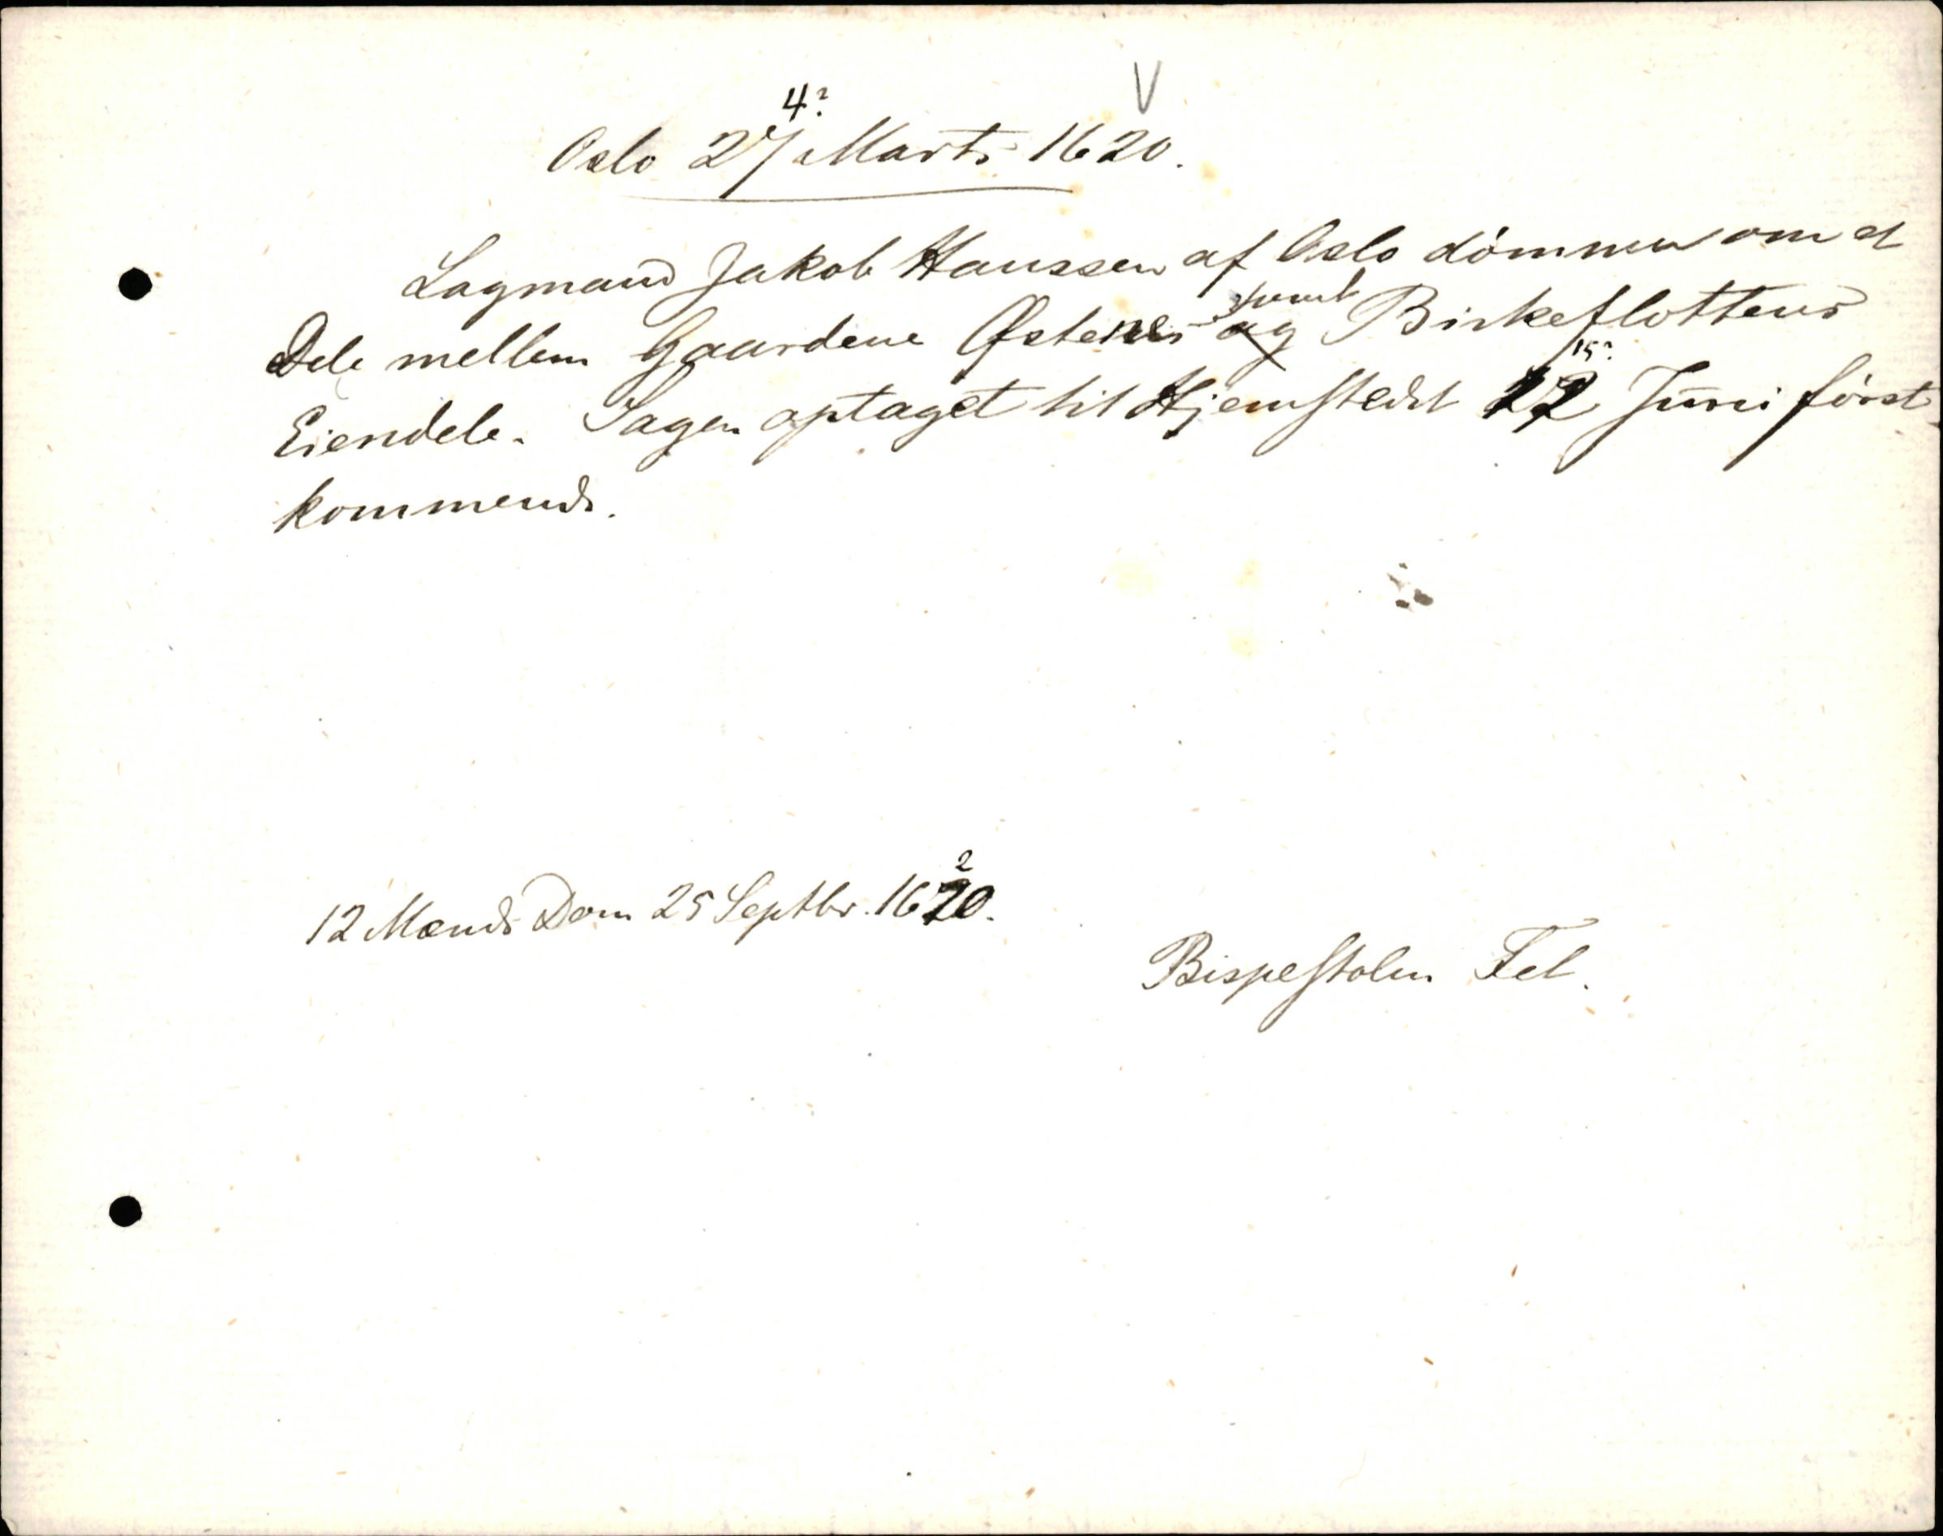 V
4?
Oslo 27 Marts 1620.
Lagmand Jakob Hanssen af Oslo dömmer om et
Dele mellem Gaardene Østenes og Birkeflottens
15?
Eiendele. Sagen optaget til Hjemstedet 12 Juni först
kommende.
2
12 Mænds Dom 25 Septbr. 1620.
Bispestolen Fel.